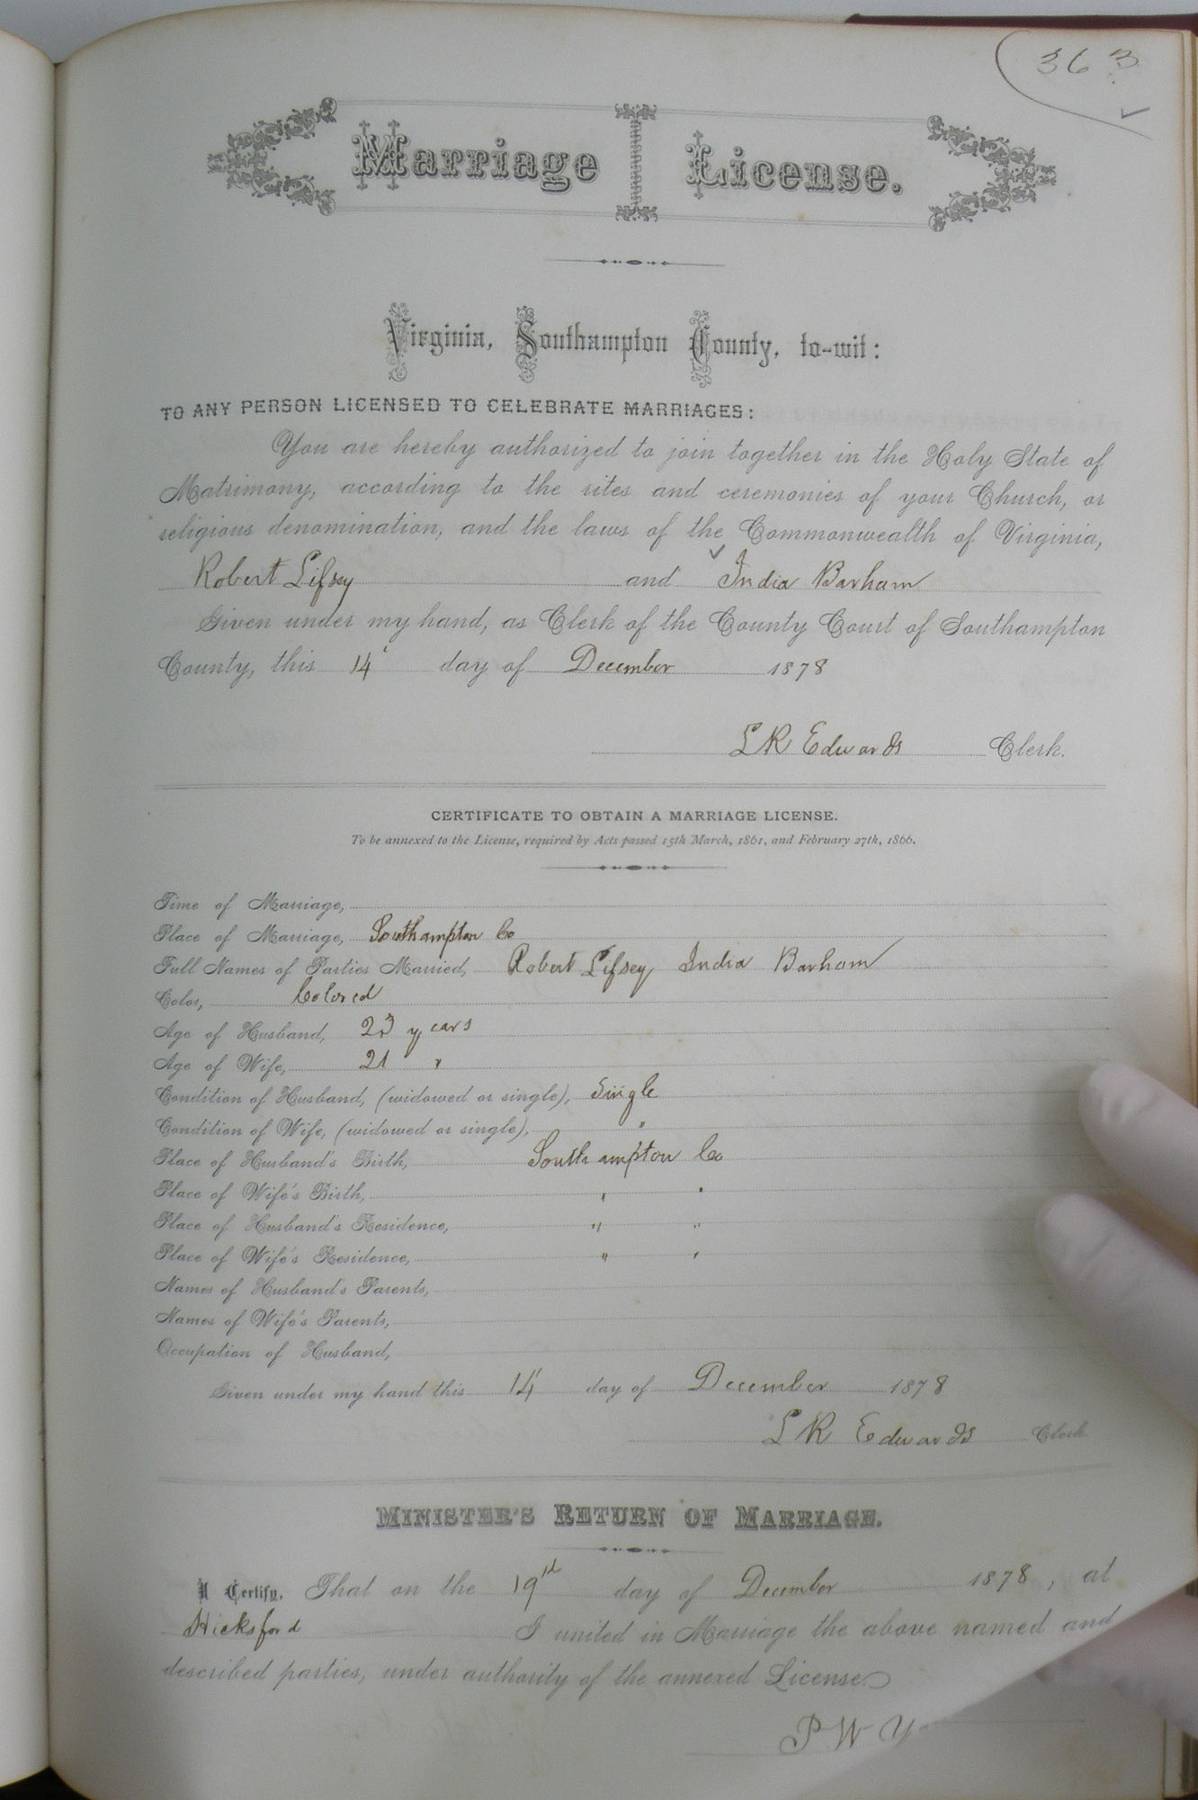 363
Marriage License.
Virginia, Southampton County, to-wit:
TO ANY PERSON LICENSED TO CELEBRATE MARRIAGES:
You are hereby authorized to join together in the Holy State of
Matrimony, according to the rites and ceremonies of your Church, or
religious denomination, and the laws of the Commonwealth of Virginia,
Robert Lifsey and India Barham
Given under my hand, as Clerk of the County Court of Southampton
County, this 14 day of December 1878
L R Edwards Clerk.
CERTIFICATE TO OBTAIN A MARRIAGE LICENSE.
To be annexed to the License, required by Acts passed 15th March, 1861, and February 27th, 1866.
Time of Marriage,
Place of Marriage, Southampton Co
Full Names of Parties Married, Robert Lifsey India Barham
Color, Colored
Age of Husband, years
Age of Wife, 21 "
Condition of Husband, (widowed or single), Single
Condition of Wife, (widowed or single), "
Place of Husband's Birth, Southampton Co
Place of Wife's Birth, " "
Place of Husband's Residence, " "
Place of Wife's Residence, " "
Names of Husband's Parents,
Names of Wife's Parents,
Occupation of Husband,
Given under my hand this 14 day of December 1878
L R Edwards Clerk
MINISTER'S RETURN OF MARRIAGE.
I Certify, That on the 19th day of December 1878, at
Hicksford I united in Marriage the above named and
described parties, under authority of the annexed License.
P W